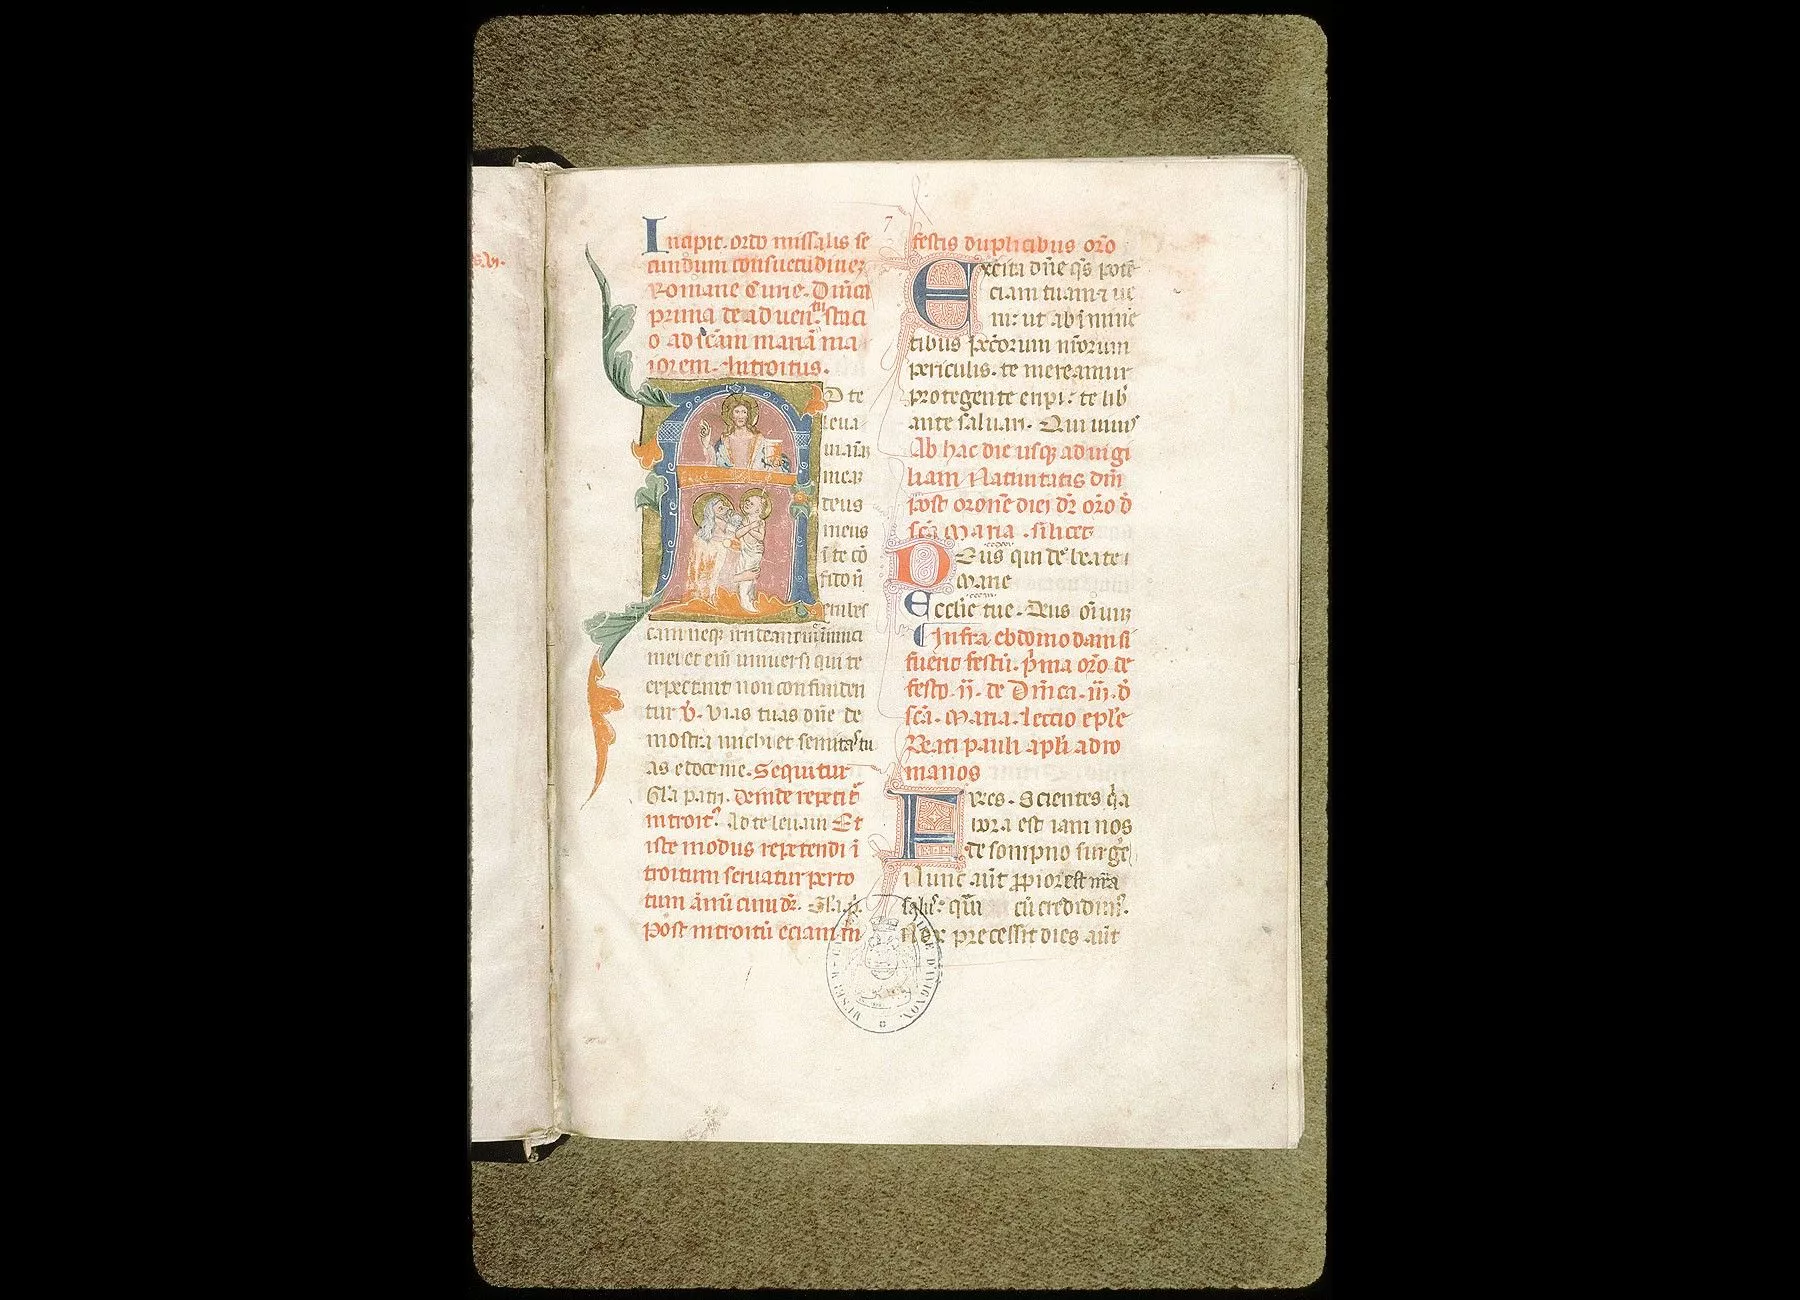 Incipit. ordo missalis se
cundum consuetudinez
Romane Curie. Dnica
prima de aduentu. staci
o ad scam maria ma
iorem. Introitus.
Ad te
leua
ui aīaȝ
meaȝ
deus
meus
ī te cō
fido nō
erubes
cam neqꝫ irrideant me inimici
mei et eiꝫ uniuersi qui te
expectant non confunden
tur ꝟ. Vias tuas dn̄e de
mostra michi et semitas tu
as edoce me. Sequitur
Gl̄a patri. deinde repetit̄
introit᷑. Ad te leuaui Et
iste modus repetendi ī
troitum seruatur per to
tum annū cum dr̄. Gl̄a p̄.
Post introitū eciam in
festis duplicibus oro
Excita dn̄e qs̄ potē
ciam tuam ⁊ ue
ni: ut ab īminē
tibus pc̄c̄orum nr̄orum
periculis. te mereamur
protegente eripi: te lib̄
ante saluari. Qui uiuis
Ab hac die usqꝫ ad uigi
liam Natiuitatis dn̄i
post oronē diei dr̄ oro d̄
scā Maria. silicet
Deus qui de beate
Marie
Ecclīe tue. Deus oīum
Infra ebdomodam si
fuerit festū. p̄ma oro de
festo. ii. de Dn̄ica. iii. d̄
scā. Maria. Lectio eplē
Beati pauli apl̄i ad ro
manos
Fr̄es. Scientes q̄a
hora est iam nos
de sompno surgē
Nunc aūt ꝓpior est nr̄a
salus: q̄m cū credidim᷑.
Nox precessit dies aūt
D'AVIGNON.